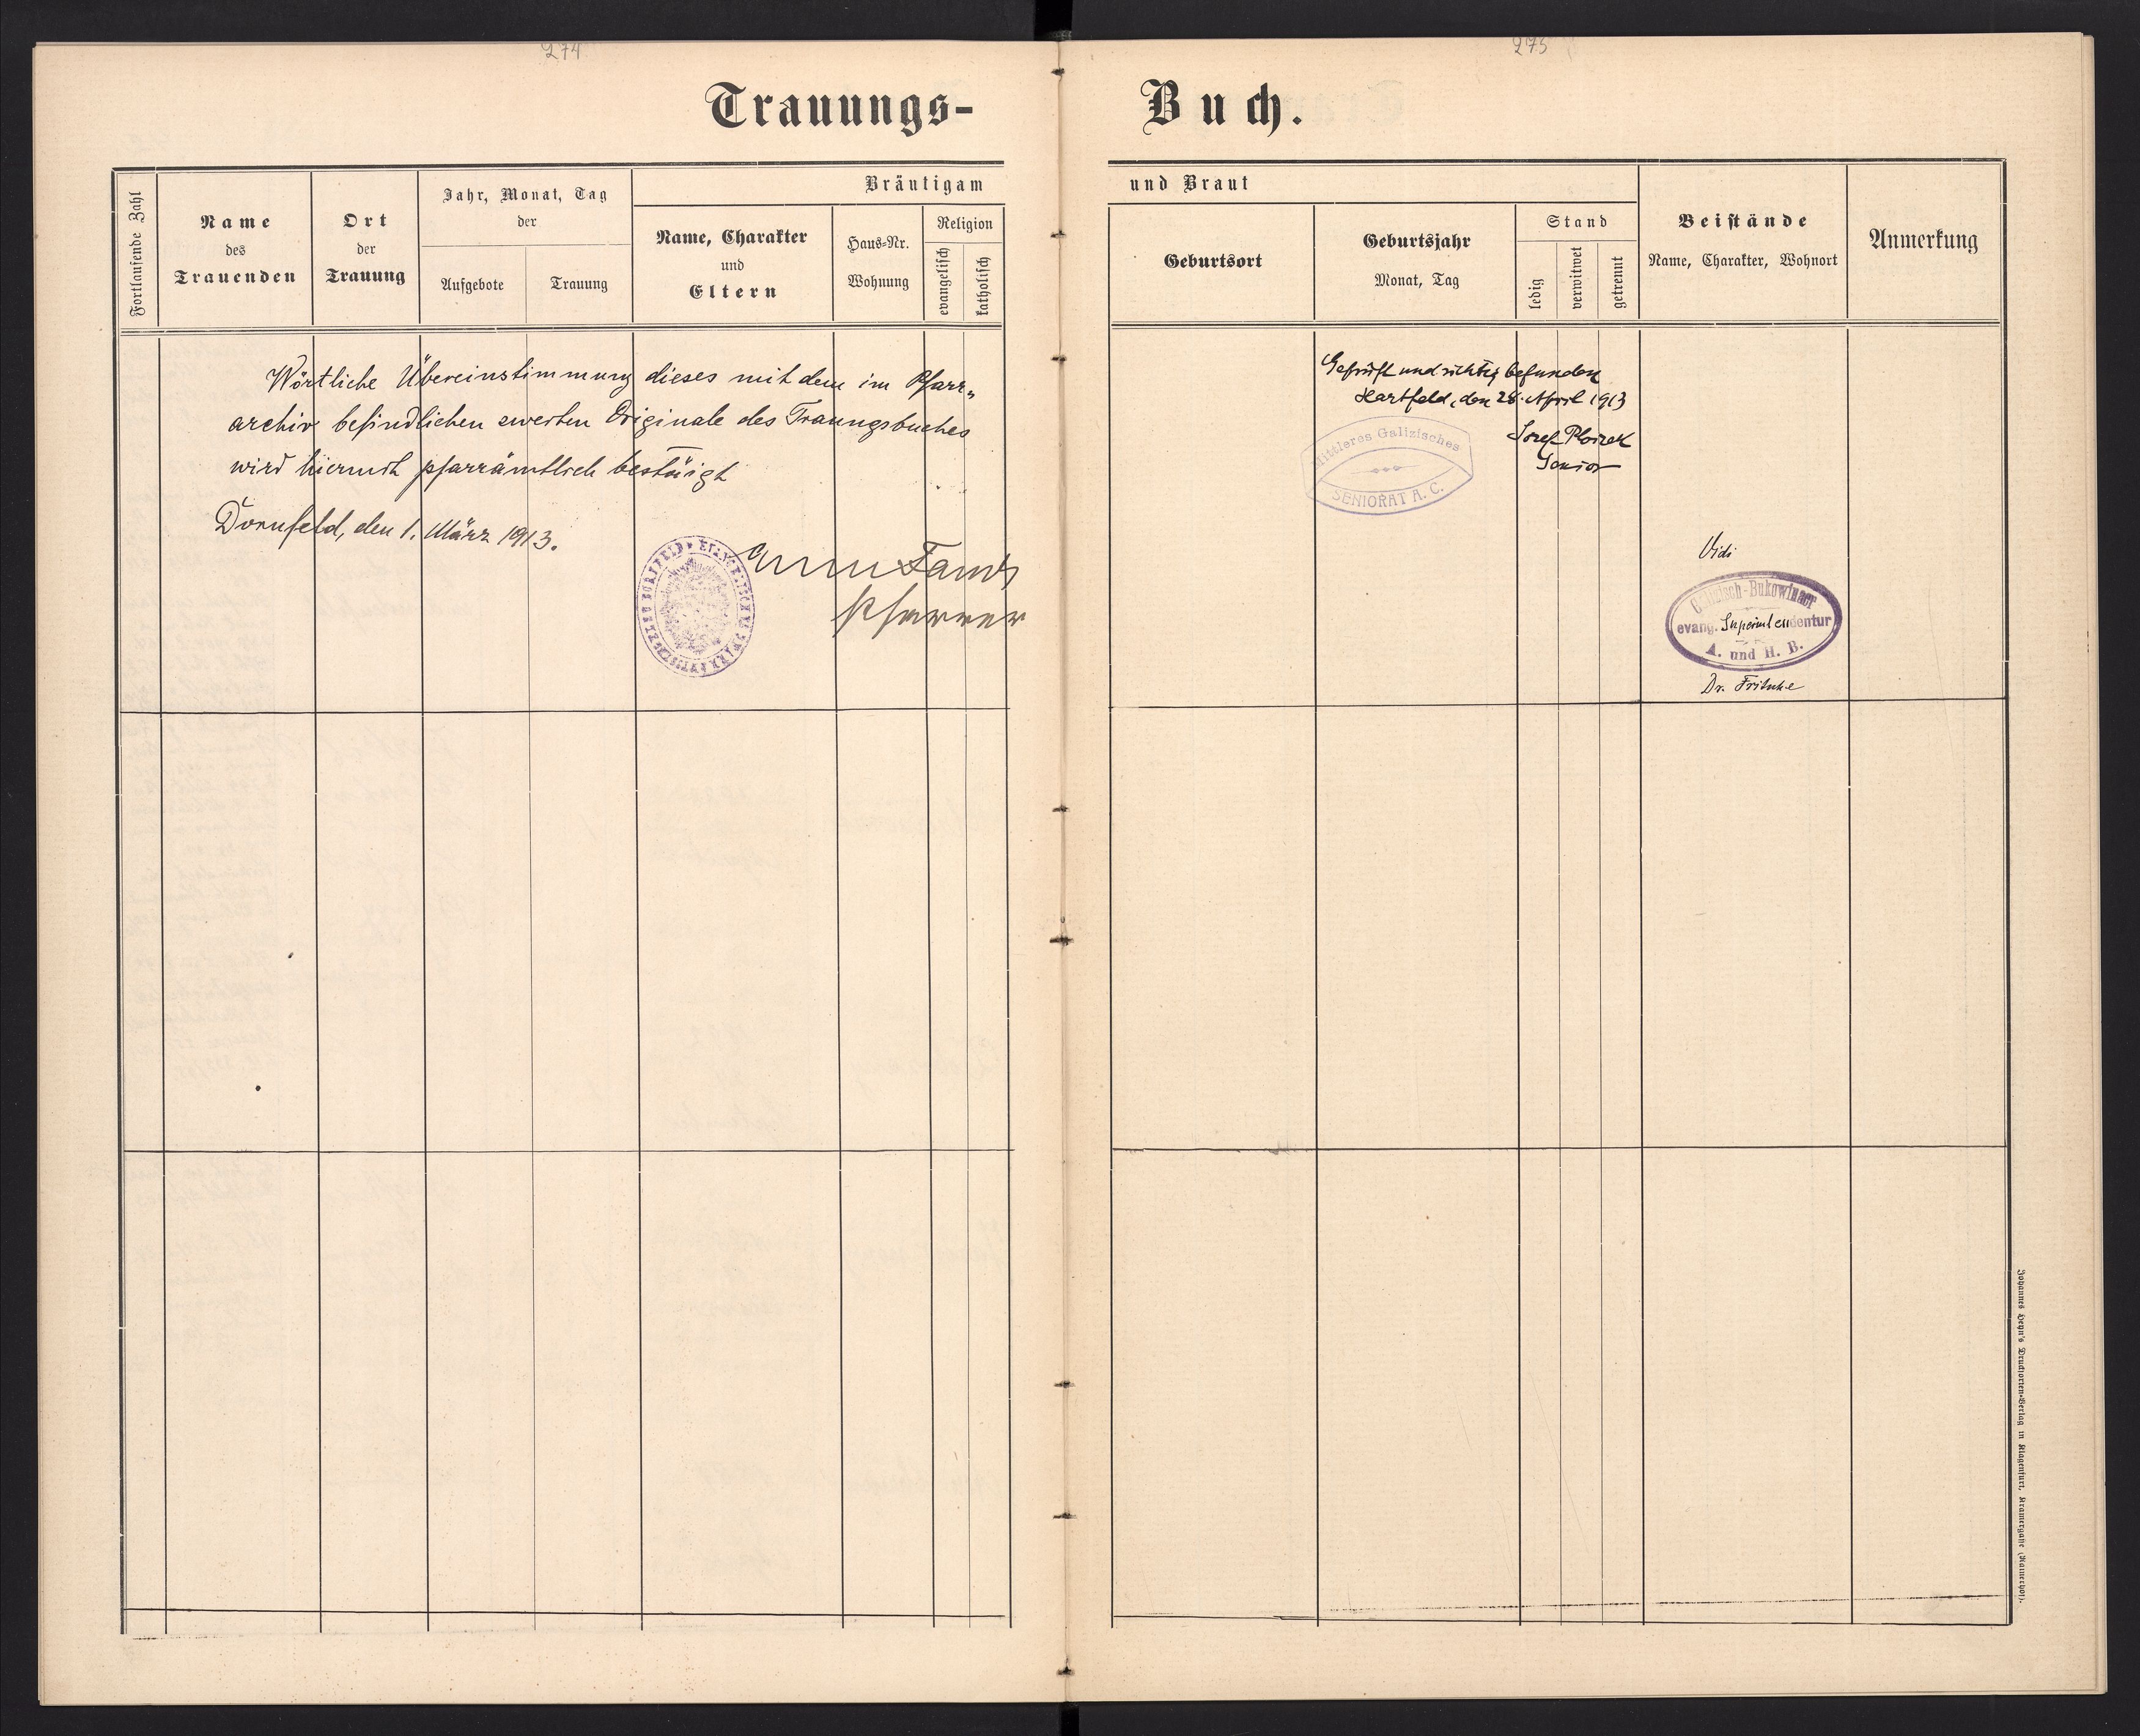 274
Trauungs-
Fortlaufende Zahl
Name
des
Trauenden
Ort
der
Trauung
Jahr, Monat, Tag
der
Aufgebote
Trauung
Bräutigam
Name, Charakter
und
Eltern
Haus-Nr.
Wohnung
Religion
evangelisch
katholisch
Wörtliche Übereinstimmung dieses mit dem im Pfarr„
archiv befindlichen zweiten Originale des Trauungsbuches
wird hiermit pfarrämtlich bestätigt
Dornfeld, den 1. März 1913.
Pfarrer
275
Buch.
und Braut
Geburtsort
Geburtsjahr
Monat, Tag
Stand
ledig
verwitwet
getrennt
Beistände
Name, Charakter, Wohnort
Anmerkung
Geprüft und richtig befunden
Hartfeld, den 28. April 1913
Josef
Senior
Mittleres Galizisches
SENIORAT A. C.
Vidi
Galizisch-Bukowinaer
evang. Superintendentur
A. und H. B.
Dr. Fritsche
Johannes Heyn's Drucksorten-Verlag in Klagenfurt, Kramergasse (Rainerhof).